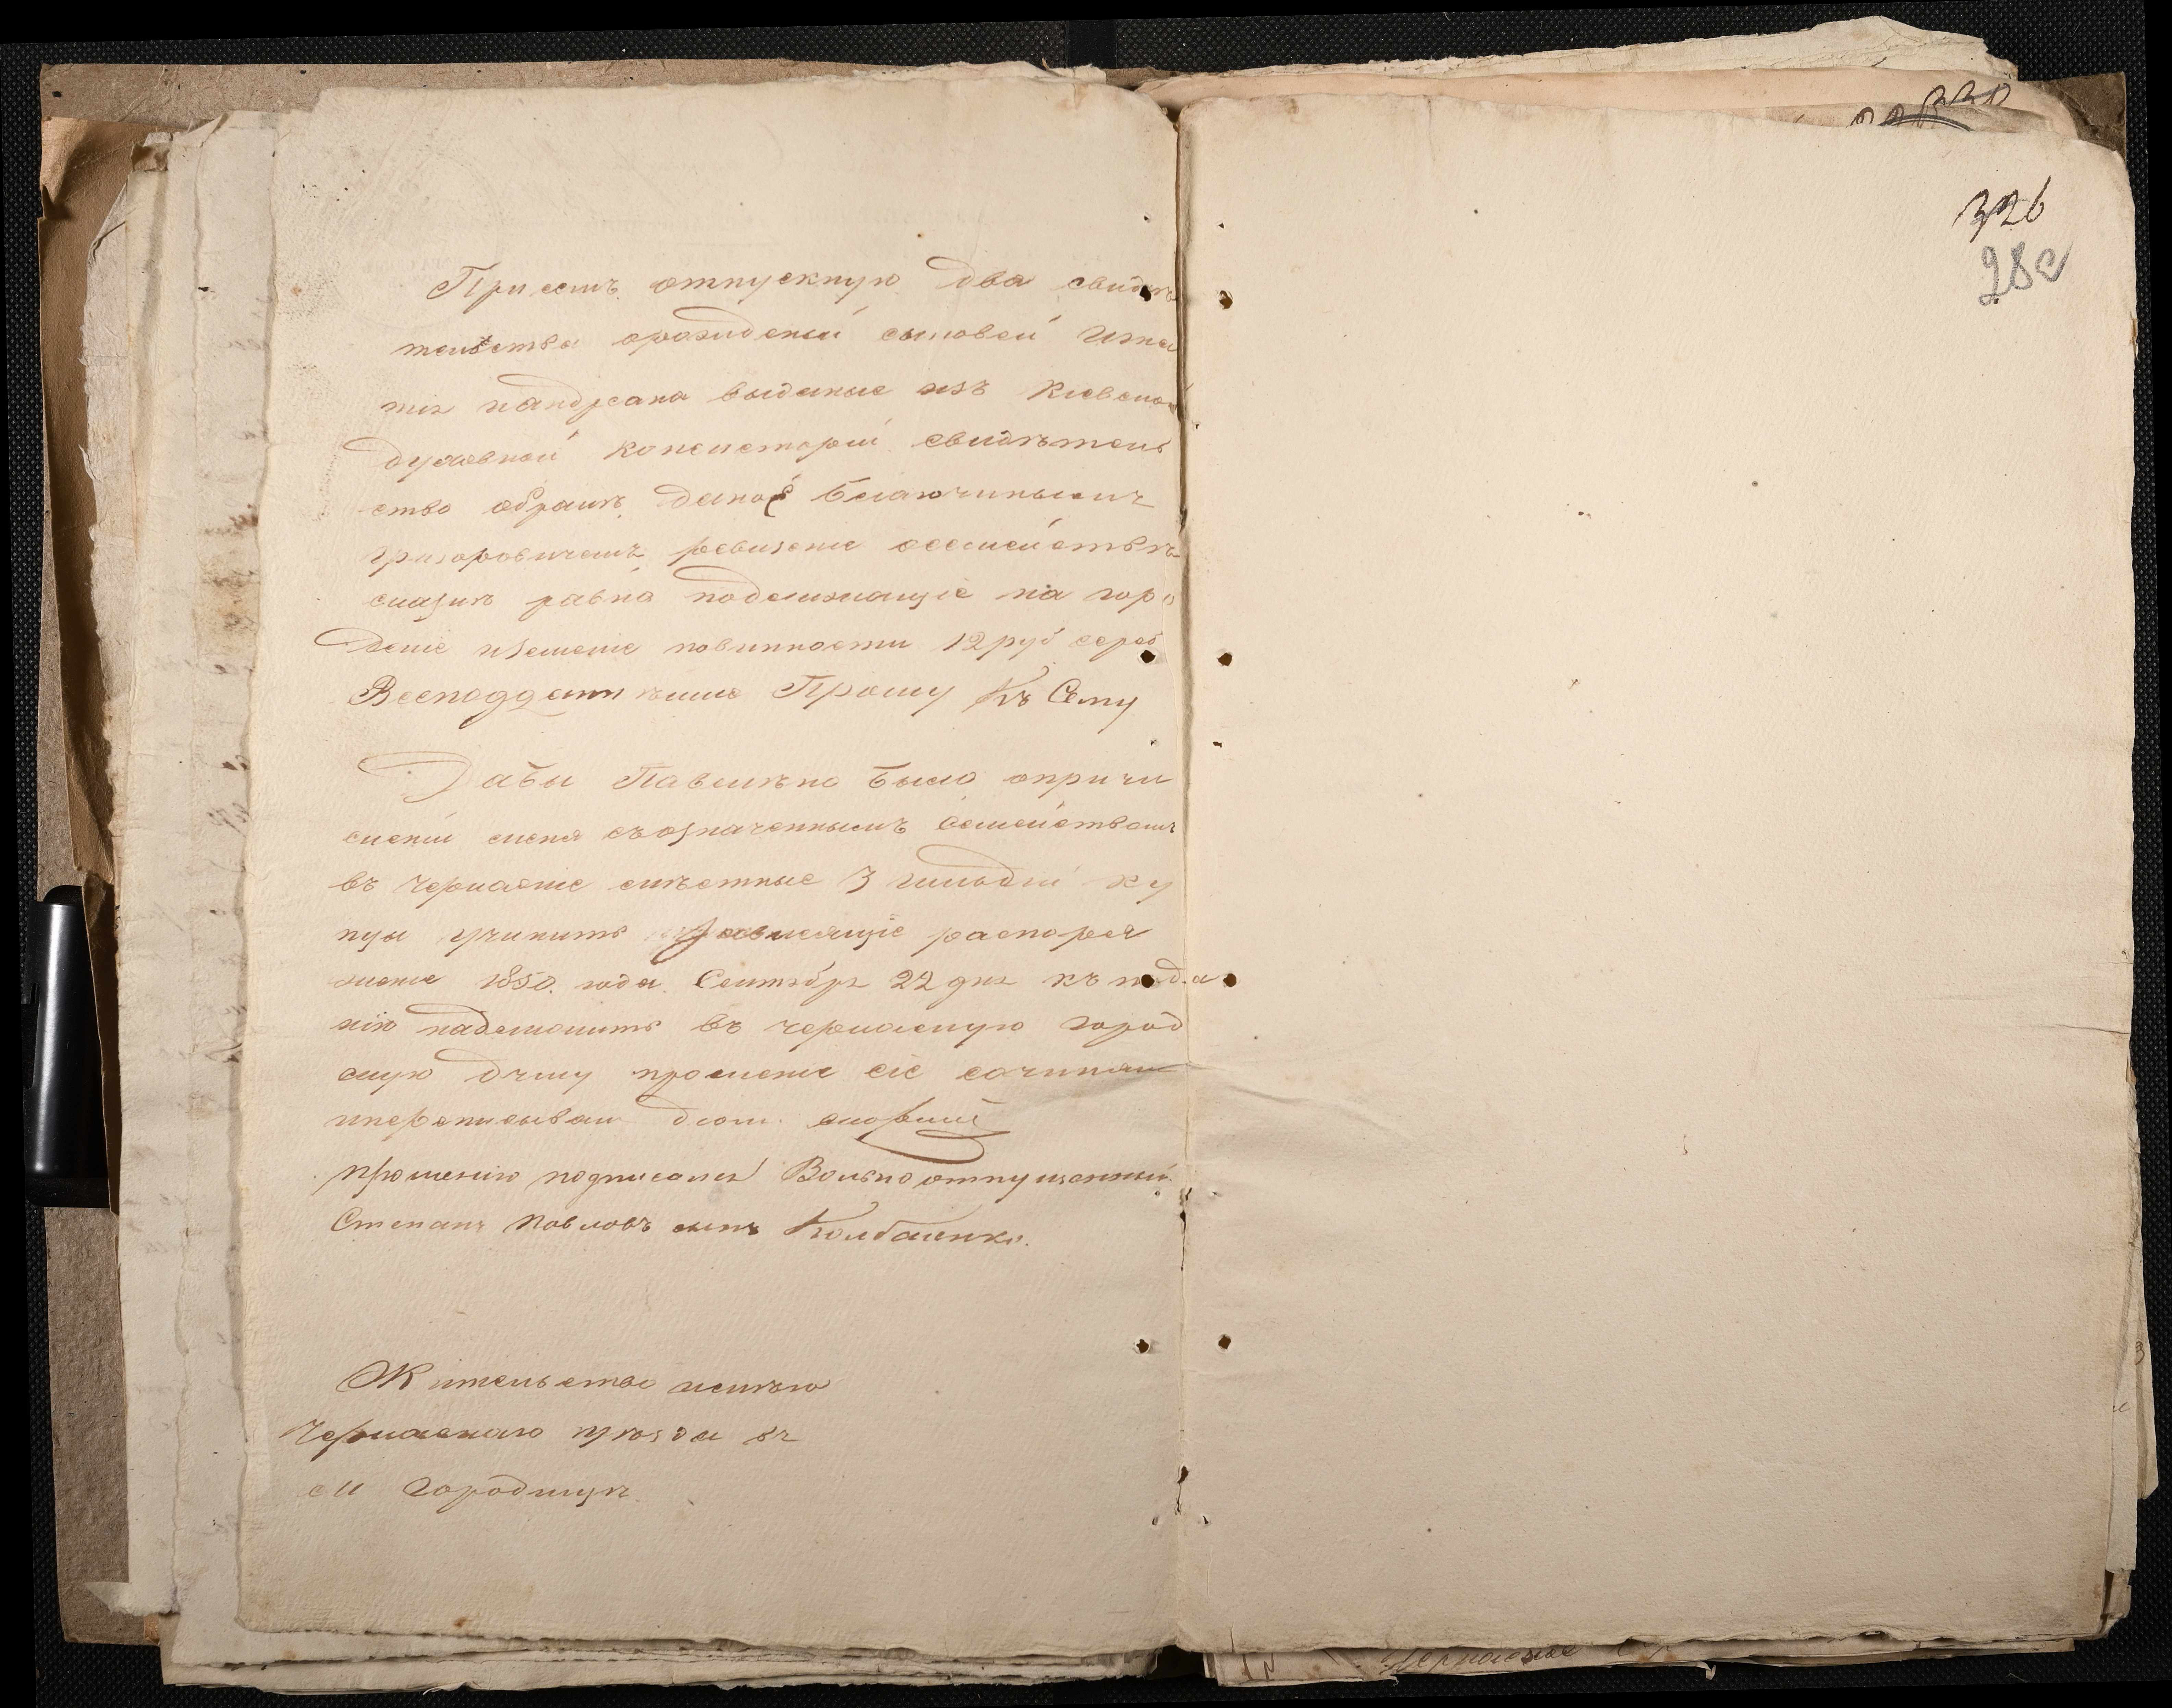 При семъ отпускную два свидѣ
тельства орождений сыновей Игна
тія иандреана выданые изъ Киевской
духовной консисторіи свидѣтель
ство обракѣ даное Благочинымъ
григоровичемъ ревизские осемействѣ
сказки равно подлежащіе на горо
деніе повинности 12 руб сереб
Всеподданнѣйше Прошу Къ Сему
Дабы Повелѣно было опричи
сленіи меня съозначеннымъ семействомъ
въ Черкаские 3 гильдіи ку
пцы учинить зависящіе распоря
жение 1850. года. Сентября 22 дня къ пода
нію надлежитъ въ черкаскую город
скую думу прошение сіе сочинял
иперописывал
прошенію подписался Вольноотпущенный
Степанъ Павловъ сынъ Колбасенко.
Жительство имѣю
Черкаскаго уѣзда въ
м Городищѣ
326
280